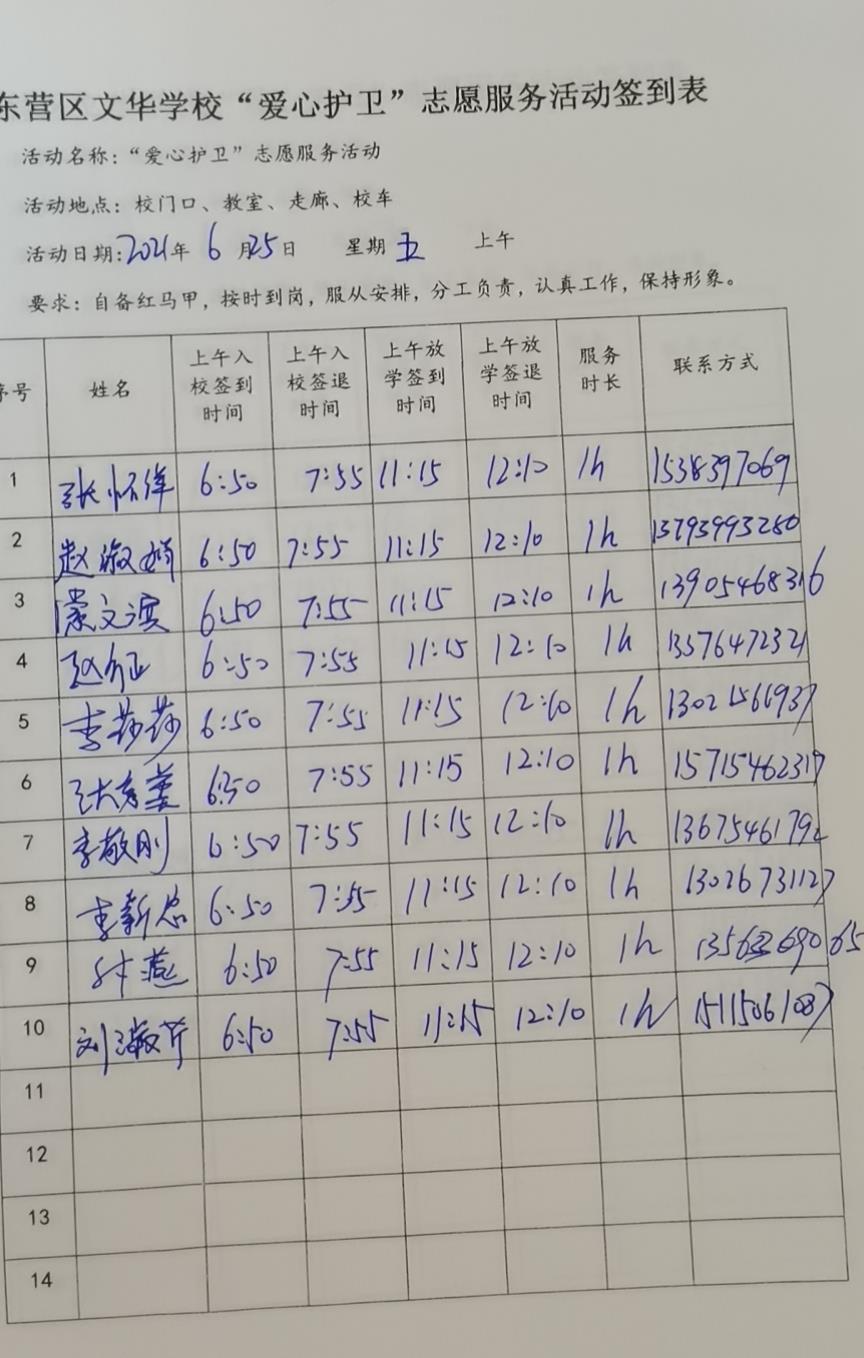 东营区文华学校“爱心护卫”志愿服务活动签到表
活动名称：“爱心护卫”志愿服务活动
活动地点：校门口、教室、走廊、校车
活动日期：2021年 6 月25日 星期 五 上午
要求：自备红马甲，按时到岗，服从安排，分工负责，认真工作，保持形象。
序号 姓名 上午入校签到时间 上午入校签退时间 上午放学签到时间 上午放学签退时间 服务时长 联系方式
1 6:50 7:55 11:15 12:10 1h 1538397069
2 赵淑娟 6:50 7:55 11:15 12:10 1h 13793993280
3 6:50 7:55 11:15 12:10 1h 13905468316
4 6:50 7:55 11:15 12:10 1h
5 李莎莎 6:50 7:55 11:15 12:10 1h
6 6:50 7:55 11:15 12:10 1h 15715462319
7 李敬刚 6:50 7:55 11:15 12:10 1h 13675461792
8 李新忠 6:50 7:55 11:15 12:10 1h 13026731127
9 6:50 7:55 11:15 12:10 1h
10 刘淑芹 6:50 7:55 11:15 12:10 1h 15115061087
11
12
13
14